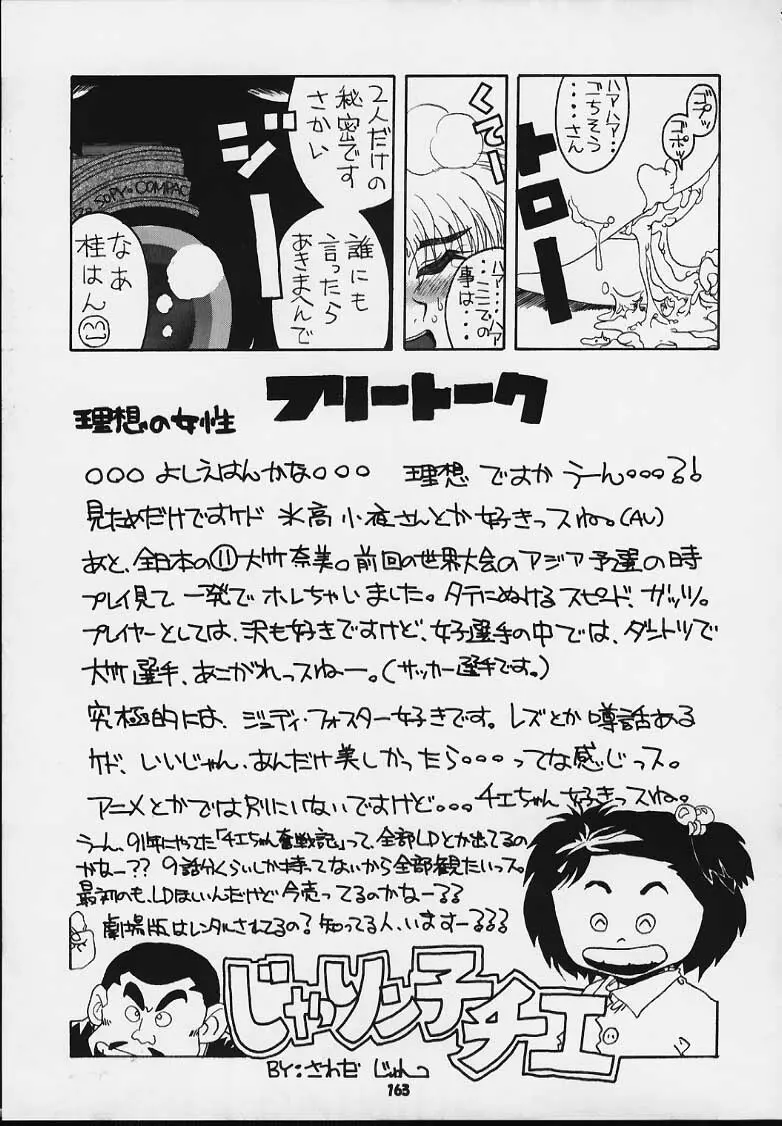 ゴプッ
ゴポッ
ハァハァ…
ごちそう
・・・・さん
トロー
くてー
ハァ…ハァ
・・ここでの
事は・・・・
2人だけの
秘密です
さかい
ジー
誰にも
言ったら
あきまへんで
SOPY・COMPAC
なあ
桂はん
フリートーク
理想の女性
○○○よしえはんかな○○○ 理想ですかうーん。。。る!
見ためだけですケド 氷高小夜さんとか好きっスね。(AV)
あと、全日本の⑪大竹奈美。前回の世界大会のアジア予選の時
プレイ見て一発でホレちゃいました。タテにぬけるスピード、ガッツ。
プレイヤーとしては、沢も好きですけど、女子選手の中では、ダントツで
大竹選手、あこがれっスねー。(サッカー選手です。)
究極的には、ジュディ・フォスター好きです。レズとか噂話ある
ケド、いいじゃん、あんだけ美しかったら。。。ってな感じっス。
アニメとかでは別にいないですけど。。。チエちゃん好きっスね。
うーん、91年にやった「チエちゃん奮戦記」って、全部LDとか出てるの
かなー?? 9話分くらいしか持ってないから全部観たいっス。
最初のも、LDほしいんだけど今売ってるのかなーるる
劇場版はレンタルされてるの?知ってる人、いますーるるる
じゃりン子チエ
BY:さわだ じゅんこ
163